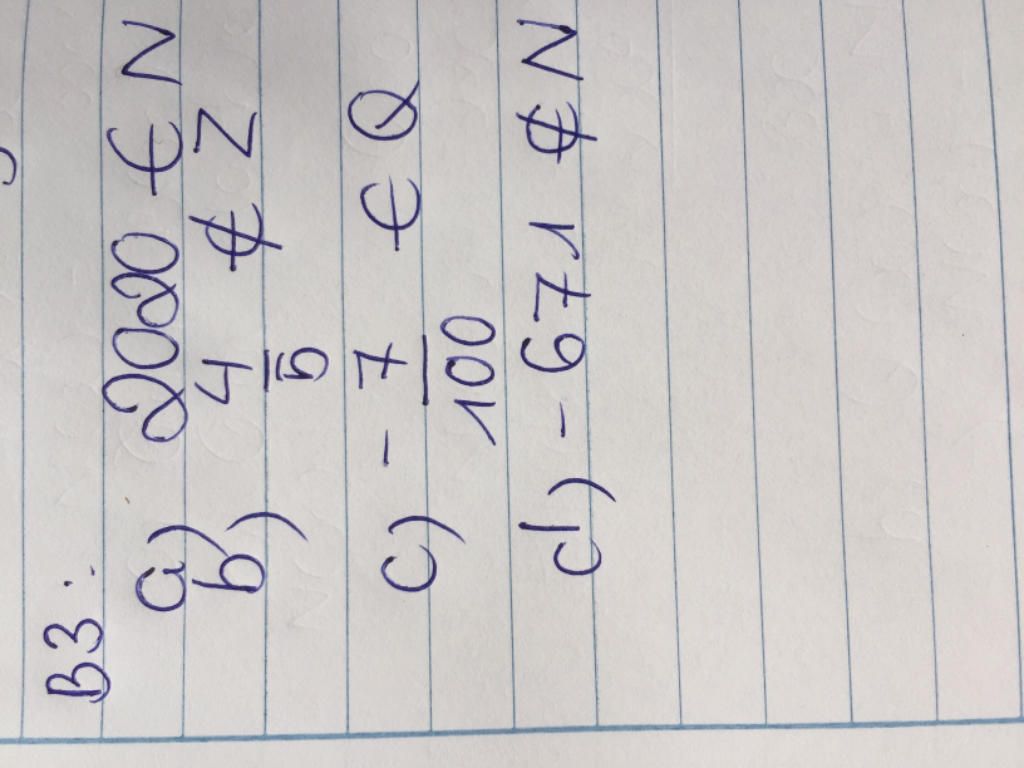 B3:
a) 2020 ∈ N
b) 4/5 ∉ Z
c) - 7/100 ∈ Q
d) - 671 ∉ N